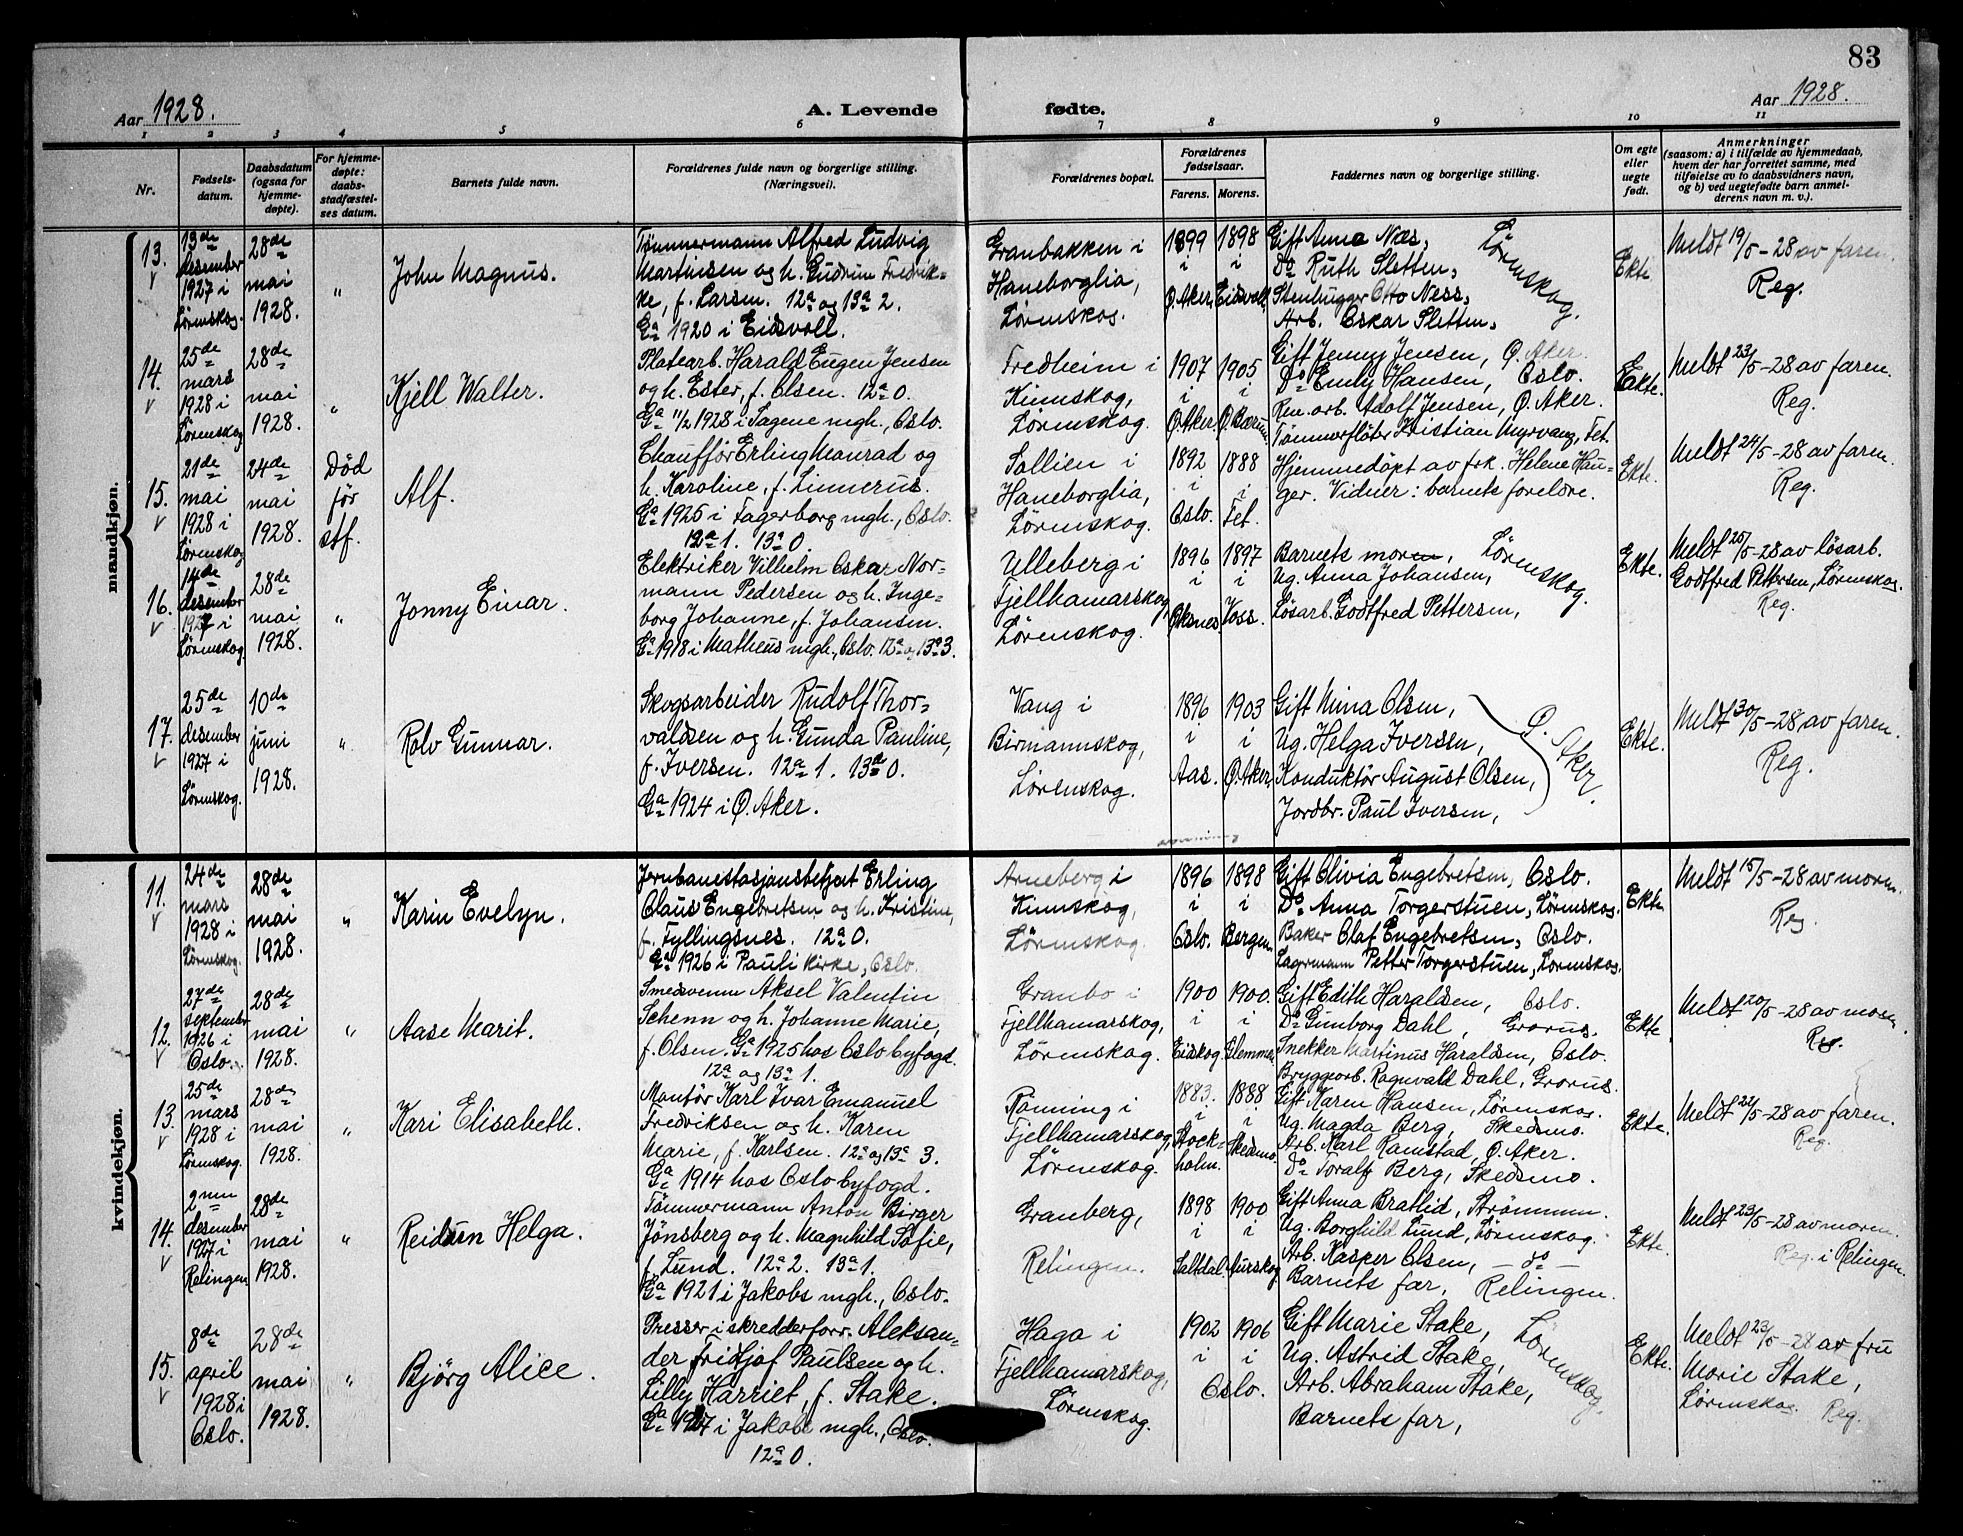 83
Aar 1928.
A. Levende fødte.
Aar 1928.
1 2 3 4 5 6 7 8 9 10 11
Nr.
Fødselsdatum.
Daabsdatum (ogsaa for hjemmedøpte).
For hjemmedøpte: daabsstadfæstelses datum.
Barnets fulde navn.
Forældrenes fulde navn og borgerlige stilling. (Næringsvei).
Forældrenes bopæl.
Forældrenes fødselsaar.
Farens. Morens.
Faddernes navn og borgerlige stilling.
Om egte eller uegte født.
Anmerkninger
(saasom: a) i tilfælde av hjemmedaab,
hvem der har forrettet samme, med
tilføielse av to daabsvidners navn,
og b) ved uegtefødte barn anmel-
derens navn m. v.).
mandkjøn.
13.
13de
desember
1927 i
Lørenskog.
28de
mai
1928.
"
John Magnus.
Tømmermann Alfred Ludvig
Martinsen og h. Gudrun Fredrik-
ke, f. Larsen. 12a og 13a 2.
Ga 1920 i Eidsvoll.
Granbakken i
Haneborglia,
Lørenskog.
1899
i
Ø. Aker.
1898
i
Eidsvoll.
Gift Anna Næs,
Do Ruth Sletten,
Stenhugger Otto Ness,
Arb. Oskar Sletten,
Lørenskog.
Ekte.
Meldt 19/5-28 av faren.
Reg.
14.
25de
mars
1928 i
Lørenskog
28de
mai
1928.
"
Kjell Walter.
Platearb. Harald Eugen Jensen
og h. Ester, f. Olsen. 12a 0.
Ga 11/2 1928 i Sagene mgh., Oslo.
Fredheim i
Kinnskog,
Lørenskog.
1907
i
Ø. Aker.
1905
i
Ø. Bærum
Gift Jenny Jensen, Ø. Aker.
Do Emly Hansen, Oslo.
Ren. arb. Adolf Jensen, Ø. Aker.
Tømmerfløter Kristian Myrvang, Fet.
Ekte.
Meldt 23/5-28 av faren.
Reg.
15.
21de
mai
1928 i
Lørenskog
24de
mai
1928.
Død
før
stf.
Alf.
Chauffør Erling Monrad og
h. Karoline, f. Linnerus.
Ga 1925 i Fagerborg mgh., Oslo.
12a 1. 13a 0.
Sollien i
Haneborglia,
Lørenskog.
1892
i
Oslo.
1888
i
Fet.
Hjemmedøpt av frk. Helene Hau-
ger. Vidner: barnets foreldre.
Ekte.
Meldt 24/5-28 av faren.
Reg.
16.
14de
desember
1927 i
Lørenskog.
28de
mai
1928.
"
Jonny Einar.
Elektriker Vilhelm Oskar Nor-
mann Pedersen og h. Inge-
borg Johanne, f. Johansen.
Ga 1918 i Matheus mgh., Oslo. 12a og 13a 3.
Ulleberg i
Fjellhamarskog,
Lørenskog.
1896
i
Øksnes.
1897
i
Voss.
Barnets moren,
Ug. Anna Johansen,
Løsarb. Godtfred Pettersen,
Lørenskog.
Ekte.
Meldt 25/5-28 av løsarb.
Godtfred Pettersen, Lørenskog.
Reg.
17.
25de
desember
1927 i
Lørenskog.
10de
juni
1928.
"
Rolv Gunnar.
Skogsarbeider Rudolf Thor-
valdsen og h. Gunda Pauline,
f. Iversen. 12a 1. 13a 0.
Ga 1924 i Ø. Aker.
Vang i
Birmannskog,
Lørenskog.
1896
i
Aas.
1903
i
Ø. Aker.
Gift Mina Olsen,
Ug. Helga Iversen,
Konduktør August Olsen,
Jordbr. Paul Iversen,
Ø. Aker.
Ekte.
Meldt 30/5-28 av faren.
Reg.
kvindekjøn.
11.
24de
mars
1928 i
Lørenskog.
28de
mai
1928.
"
Karin Evelyn.
Jernbanestasjonsbetjent Erling
Claus Engebretsen og h. Kristine,
f. Fyllingsnes. 12a 0.
Ga 1926 i Pauli kirke, Oslo.
Arneberg i
Kinnskog,
Lørenskog.
1896
i
Oslo.
1898
i
Bergen.
Gift Olivia Engebretsen, Oslo.
Do Anna Torgerstuen, Lørenskog.
Baker Olaf Engebretsen, Oslo.
Lagermann Petter Torgerstuen, Lørenskog.
Ekte.
Meldt 15/5-28 av moren.
Reg
12.
27de
september
1926 i
Oslo.
28de
mai
1928.
"
Aase Marit.
Smedsvenn Aksel Valentin
Schenn og h. Johanne Marie,
f. Olsen. Ga 1925 hos Oslo byfogd.
12a og 13a 1.
Granbo i
Fjellhamarskog,
Lørenskog.
1900
i
Eidskog.
1900.
i
Glemmen
Gift Edith Haraldsen, Oslo.
Do Gunborg Dahl, Grorud.
Snekker Martinus Haraldsen, Oslo.
Bryggearb. Ragnvald Dahl, Grorud.
Ekte
Meldt 20/5-28 av moren.
Reg.
13.
25de
mars
1928 i
Lørenskog.
28de
mai
1928.
"
Kari Elisabeth.
Montør Karl Ivar Emanuel
Fredriksen og h. Karen
Marie, f. Karlsen. 12a og 13a 3.
Ga 1914 hos Oslo byfogd.
Rønning i
Fjellhamarskog,
Lørenskog.
1883.
i
Stock-
holm.
1888
i
Skedsmo.
Gift Karen Hansen, Lørenskog.
Ug. Magda Berg, Skedsmo.
Arb. Karl Ramstad, Ø. Aker.
Do Toralf Berg, Skedsmo.
Ekte.
Meldt 22/5-28 av faren.
Reg.
14.
2nen
desember
1927 i
Relingen
28de
mai
1928.
"
Reidun Helga.
Tømmermann Anton Birger
Jønsberg og h. Magnhild Sofie,
f. Lund. 12a 2. 13a 1.
Ga 1921 i Jakobs mgh., Oslo.
Granberg,
Relingen.
1898
i
Saltdal.
1900
i
Aurskog.
Gift Anna Bratlid, Strømmen.
Ug. Borghild Lund, Lørenskog.
Arb. Kasper Olsen, — do —
Barnets far, Relingen.
Ekte.
Meldt 23/5-28 av moren.
Reg. i Relingen.
15.
8de
april
1928 i
Oslo.
28de
mai
1928.
"
Bjørg Alice.
Presser i skredderforr. Aleksan-
der Fridtjof Paulsen og h.
Lilly Harriet, f. Stake.
Ga 1927 i Jakobs mgh., Oslo.
12a 0.
Haga i
Fjellhamarskog,
Lørenskog.
1902
i
1906
i
Oslo.
Gift Marie Stake,
Ug. Astrid Stake,
Arb. Abraham Stake,
Barnets far,
Lørenskog.
Ekte.
Meldt 23/5-28 av fru
Marie Stake,
Lørenskog Reg.